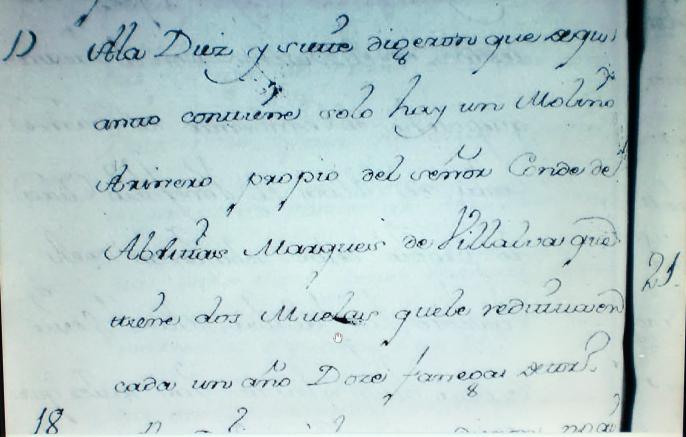 17 Ala Diez y siette digeron que de qu
antto contiene solo hay un Molino
Arinero propio del señor Conde de
Marques de Villalva que
tiene dos Muelas que le redittuaen
cada un año Doze fanegas de
21
18